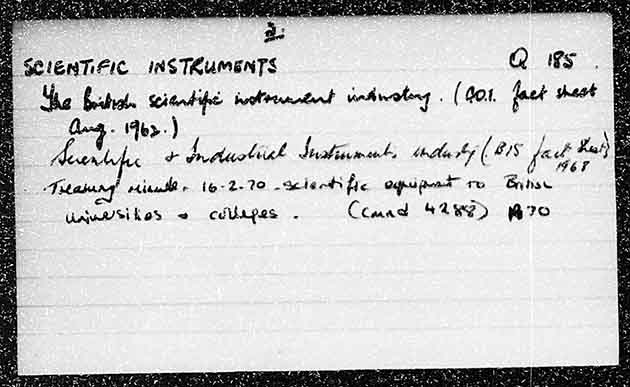 2.
SCIENTIFIC INSTRUMENTS Q 185.
The British scientific instrument industry. (C.O.I. fact sheet
Aug. 1962.)
Scientific & Industrial Instruments industry (BIS fact sheet)
1968
Treasury minute. 16-2-70 - scientific equipment to British
universities & colleges. (Cmnd 4288) 1970